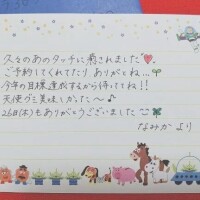 久々のあのタッチに癒されました
ご予約してくれてたり ありがとね…
今年の目標達成するから待っててね!!
天使グミ美味しかた〜♪
26日(木)もありがとうございました
なみか より